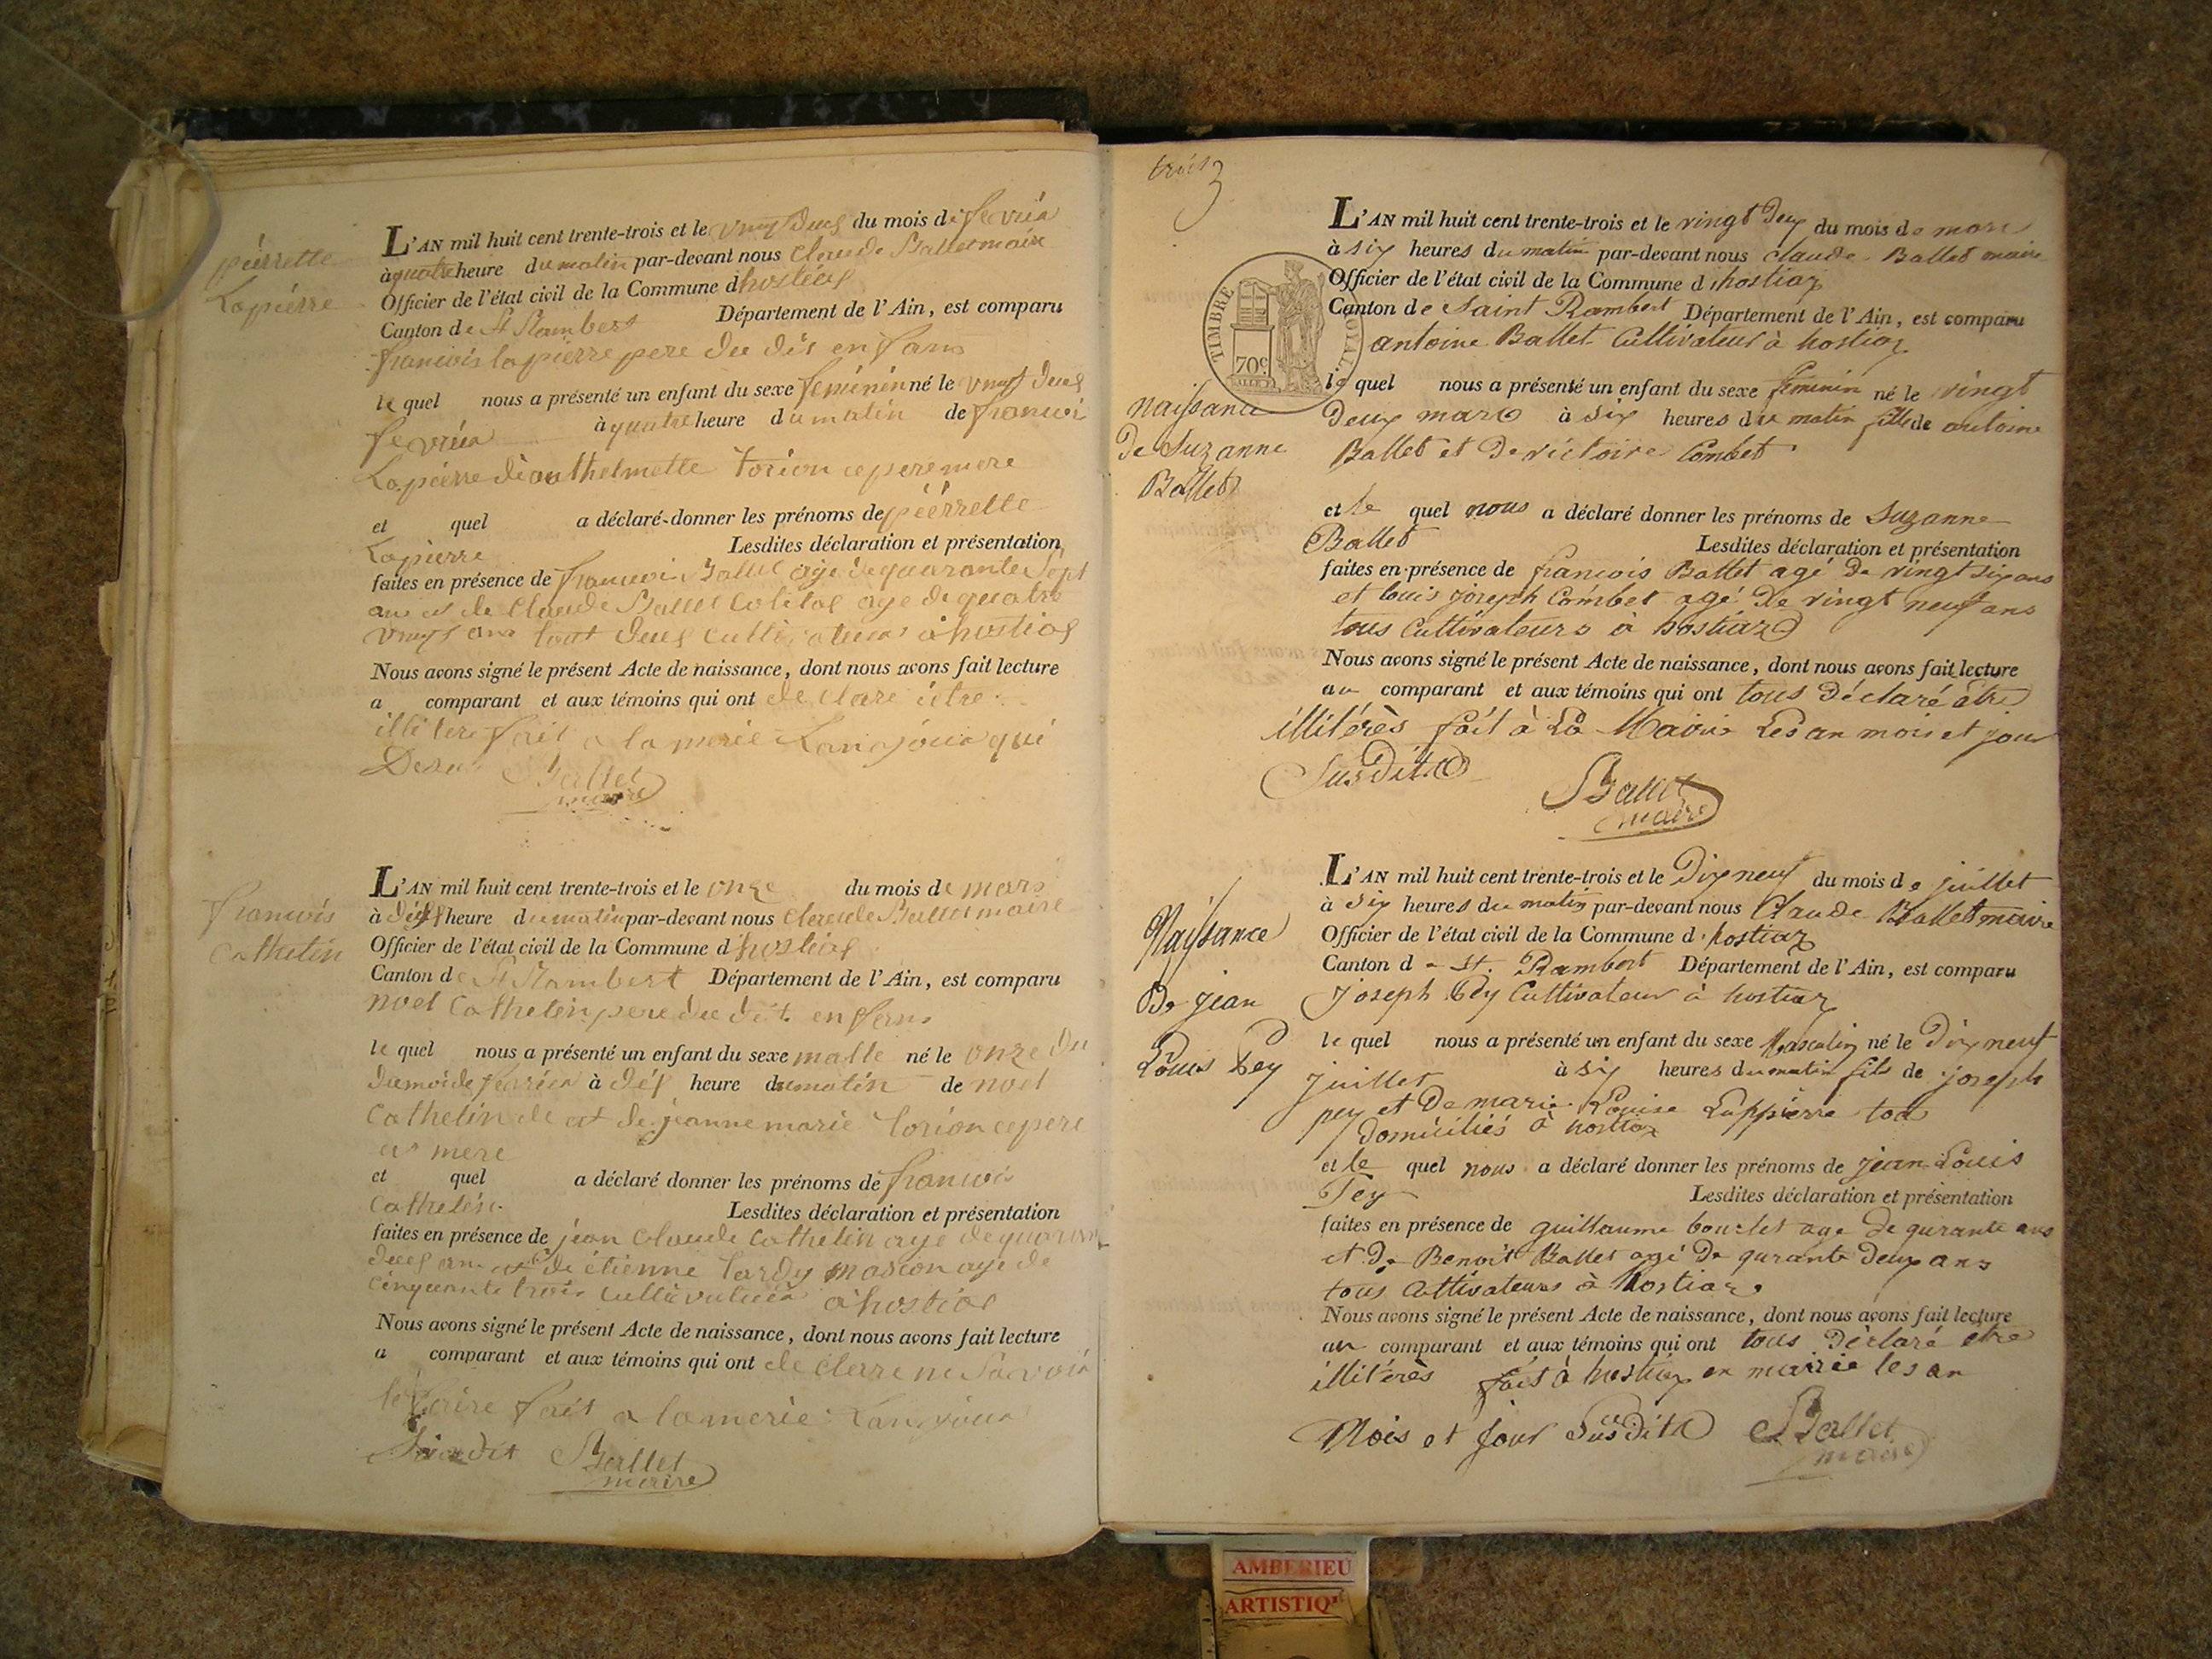 pierrette
Lapierre
L'AN mil huit cent trente-trois et le vingt deus du mois de fevriér
à quatre heure du matin par-devant nous Claude Ballet maire
Officier de l'état civil de la Commune d hostias
Canton de St Rambert Département de l'Ain, est comparu
francois lapierre pere du dit enfans
le quel nous a présenté un enfant du sexe feminin né le vingt deus
fevriér à quatre heure du matin de francoi
Lapierre de anthelmette torion ce pere mere
et quel a déclaré donner les prénoms de piérrette
Lapierre Lesdites déclaration et présentation
faites en présence de francoi Ballet age de quarante sept
ans et de Claude Ballet age de quatre
vingt ans tout deus cultivateurs a hostias
Nous avons signé le présent Acte de naissance, dont nous avons fait lecture
a comparant et aux témoins qui ont de clare être
illitere fait a la merie Lan jour qui
Desus Ballet
maire
francois
Cathelin
L'AN mil huit cent trente-trois et le onze du mois de mars
à heure du matin par-devant nous Claude Ballet maire
Officier de l'état civil de la Commune d hostias
Canton de St Rambert Département de l'Ain, est comparu
noel Cathelin pere du dit enfans
le quel nous a présenté un enfant du sexe malle né le onze du
du moi de à heure du matin de noel
Cathelin de et de jeanne marie torion ce pere
et mere
et quel a déclaré donner les prénoms de francois
Cathelin Lesdites déclaration et présentation
faites en présence de jean Claude Cathelin age de quarante
deus ans et de étienne tardy mason age de
cinquante trois cultivateur a hostias
Nous avons signé le présent Acte de naissance, dont nous avons fait lecture
a comparant et aux témoins qui ont de clerre ne savoir
fait a la merie Lan jour
Ballet
maire
trois 3
TIMBRE ROYAL
70c
naissance
de Suzanne
Ballet
L'AN mil huit cent trente-trois et le vingt deux du mois de mars
à six heures du matin par-devant nous claude Ballet maire
Officier de l'état civil de la Commune d'hostiaz
Canton de Saint Rambert Département de l'Ain, est comparu
antoine Ballet Cultivateur à hostiaz
le quel nous a présenté un enfant du sexe feminin né le vingt
deux mars à six heures du matin fille de antoine
Ballet et de victoire Combet
et le quel nous a déclaré donner les prénoms de Suzanne
Ballet Lesdites déclaration et présentation
faites en présence de francois Ballet agé de vingt six ans
et louis joseph Combet agé de vingt neuf ans
tous Cultivateurs à hostiaz
Nous avons signé le présent Acte de naissance, dont nous avons fait lecture
au comparant et aux témoins qui ont tous déclaré être
illitérès fait à La Mairie Les an mois et jour
Susdits
Ballet
maire
Naissance
De jean
Louis Pey
L'AN mil huit cent trente-trois et le Dix neuf du mois de juillet
à six heures du matin par-devant nous Claude Ballet maire
Officier de l'état civil de la Commune d'hostiaz
Canton de St. Rambert Département de l'Ain, est comparu
joseph Pey Cultivateur à hostiaz
le quel nous a présenté un enfant du sexe Masculin né le Dix neuf
juillet à six heures du matin fils de joseph
pey et De marie Louise Lappierre tous
domiciliés à hostiaz
et le quel nous a déclaré donner les prénoms de jean Louis
Pey Lesdites déclaration et présentation
faites en présence de guillaume age de qurante ans
et De Benoit Ballet agé De qurante Deux ans
tous Cultivateurs à hostiaz
Nous avons signé le présent Acte de naissance, dont nous avons fait lecture
au comparant et aux témoins qui ont tous Déclaré être
illitérès fait à hostiaz en mairie les an
Mois et jour Susdits Ballet
maire
AMBERIEU
ARTISTIQ